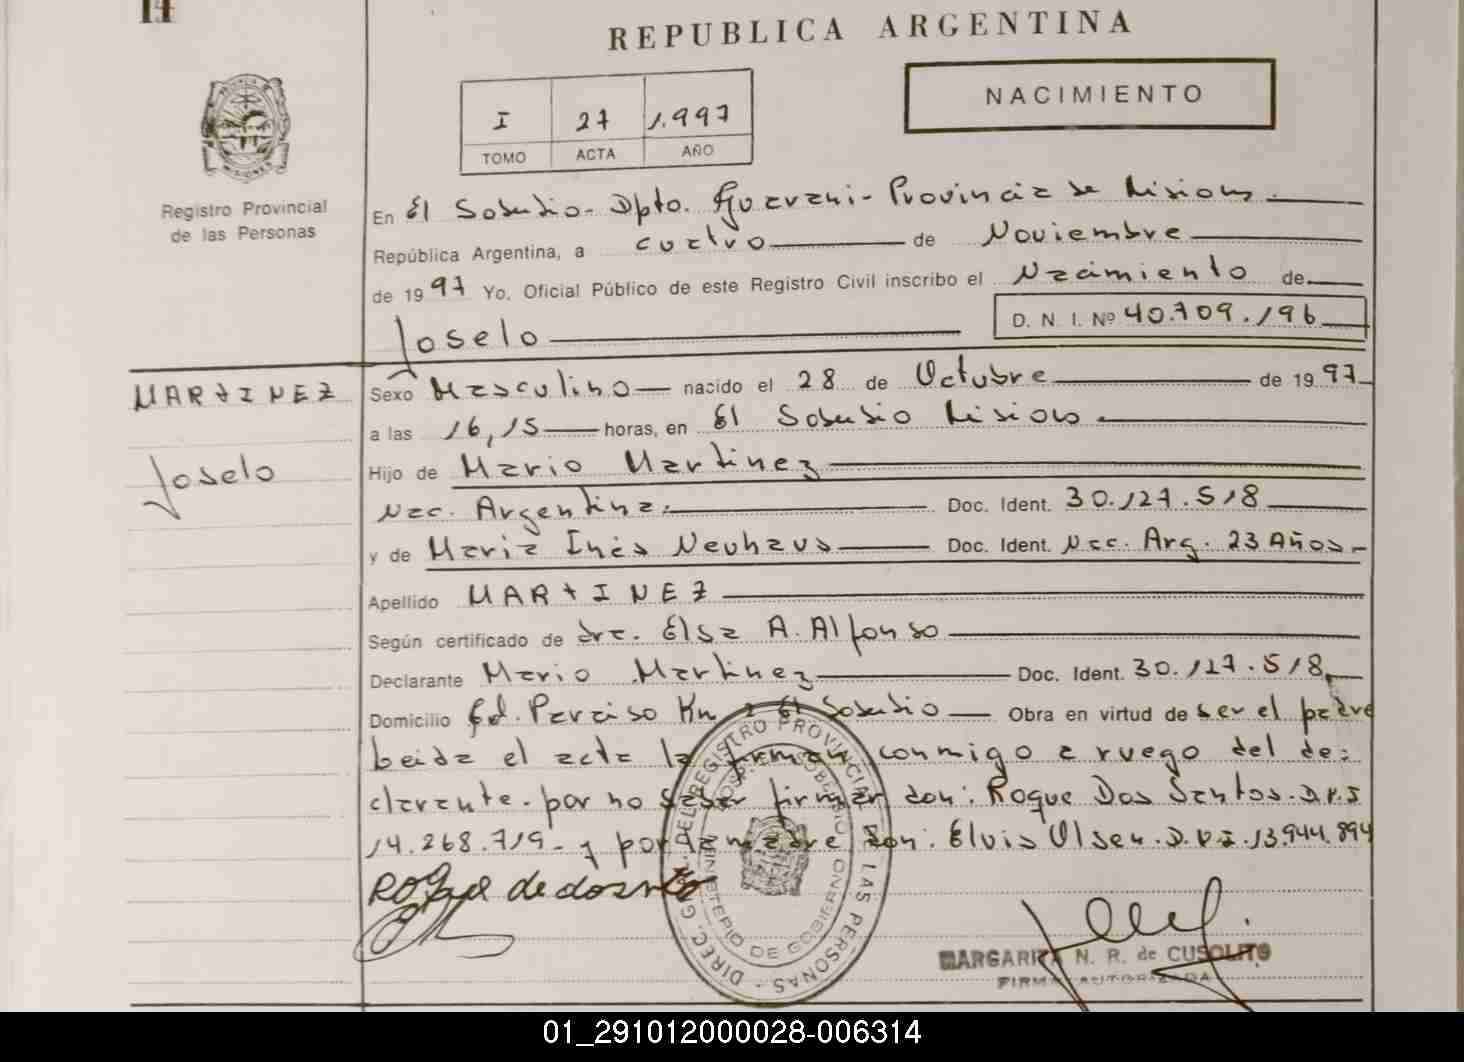 14
REPUBLICA ARGENTINA
NACIMIENTO
I 27 1.997
TOMO ACTA AÑO
Registro Provincial
de las Personas
En El Soberbio - Dpto. Guarani - Provincia de Misiones
República Argentina, a cuatro de Noviembre
de 1997 Yo. Oficial Público de este Registro Civil inscribo el Nacimiento de
Joselo D. N. I. Nº 40.709.196
MARTINEZ
Joselo
Sexo Masculino nacido el 28 de Octubre de 1997
a las 16,15 horas, en El Soberbio Misiones
Hijo de Mario Martinez
Nac. Argentina. Doc. Ident. 30.127.518
y de Maria Inés Neuhaus Doc. Ident. Nac. Arg. 23 Años
Apellido MARTINEZ
Según certificado de dra. Elsa A. Alfonso
Declarante Mario Martinez Doc. Ident. 30.127.518
Domicilio Paraiso Km El Soberbio Obra en virtud de ser el padre
Leida el acta la firman conmigo a ruego del de-
clarante por no saber firmar don: Roque Dos Santos. D.N.I
14.268.719 - y por la madre don: Elvis Olsen. D.N.I. 13.944.894
Roque de dos
MARGARITA N. R. de CUSOLITO
FIRMA AUTORIZADA
DIREC. GRAL. DEL REGISTRO PROVINCIAL DE LAS PERSONAS
MINISTERIO DE GOBIERNO
01_291012000028-006314